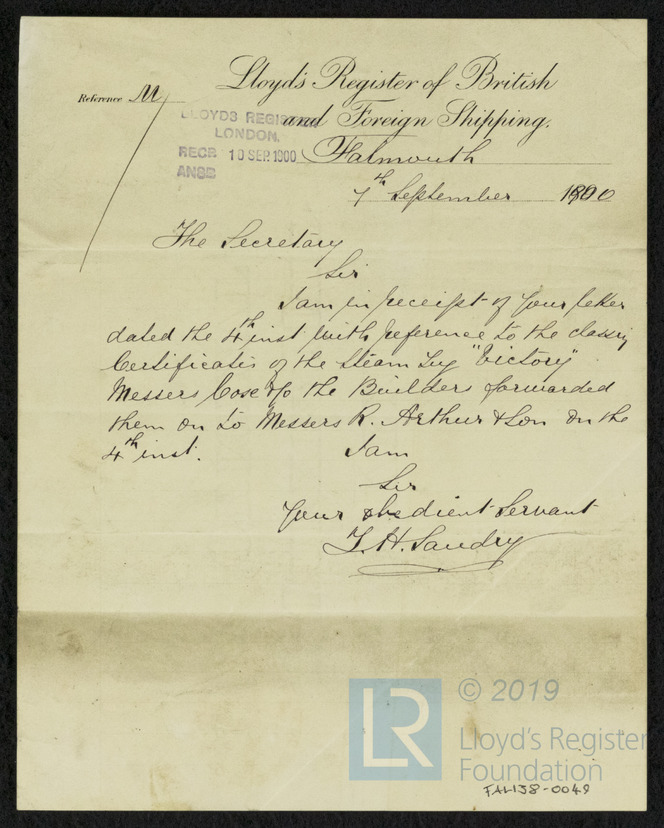 Lloyd's Register of British
and Foreign Shipping.
Reference M
LLOYDS REGISTER
LONDON.
RECR 10 SEP. 1900
ANSD
Falmouth
7th September 1900
The Secretary
Sir
I am in receipt of your letter
dated the 4th inst with reference to the classing
Certificates of the Steam Tug "Victory"
Messers Cox & Co the Builders forwarded
them on to Messers R. Arthur & Son on the
4th inst.
I am
Sir
Your obedient Servant
T. H. Sandry
LR
© 2019
Lloyd's Register
Foundation
FAL138-0049